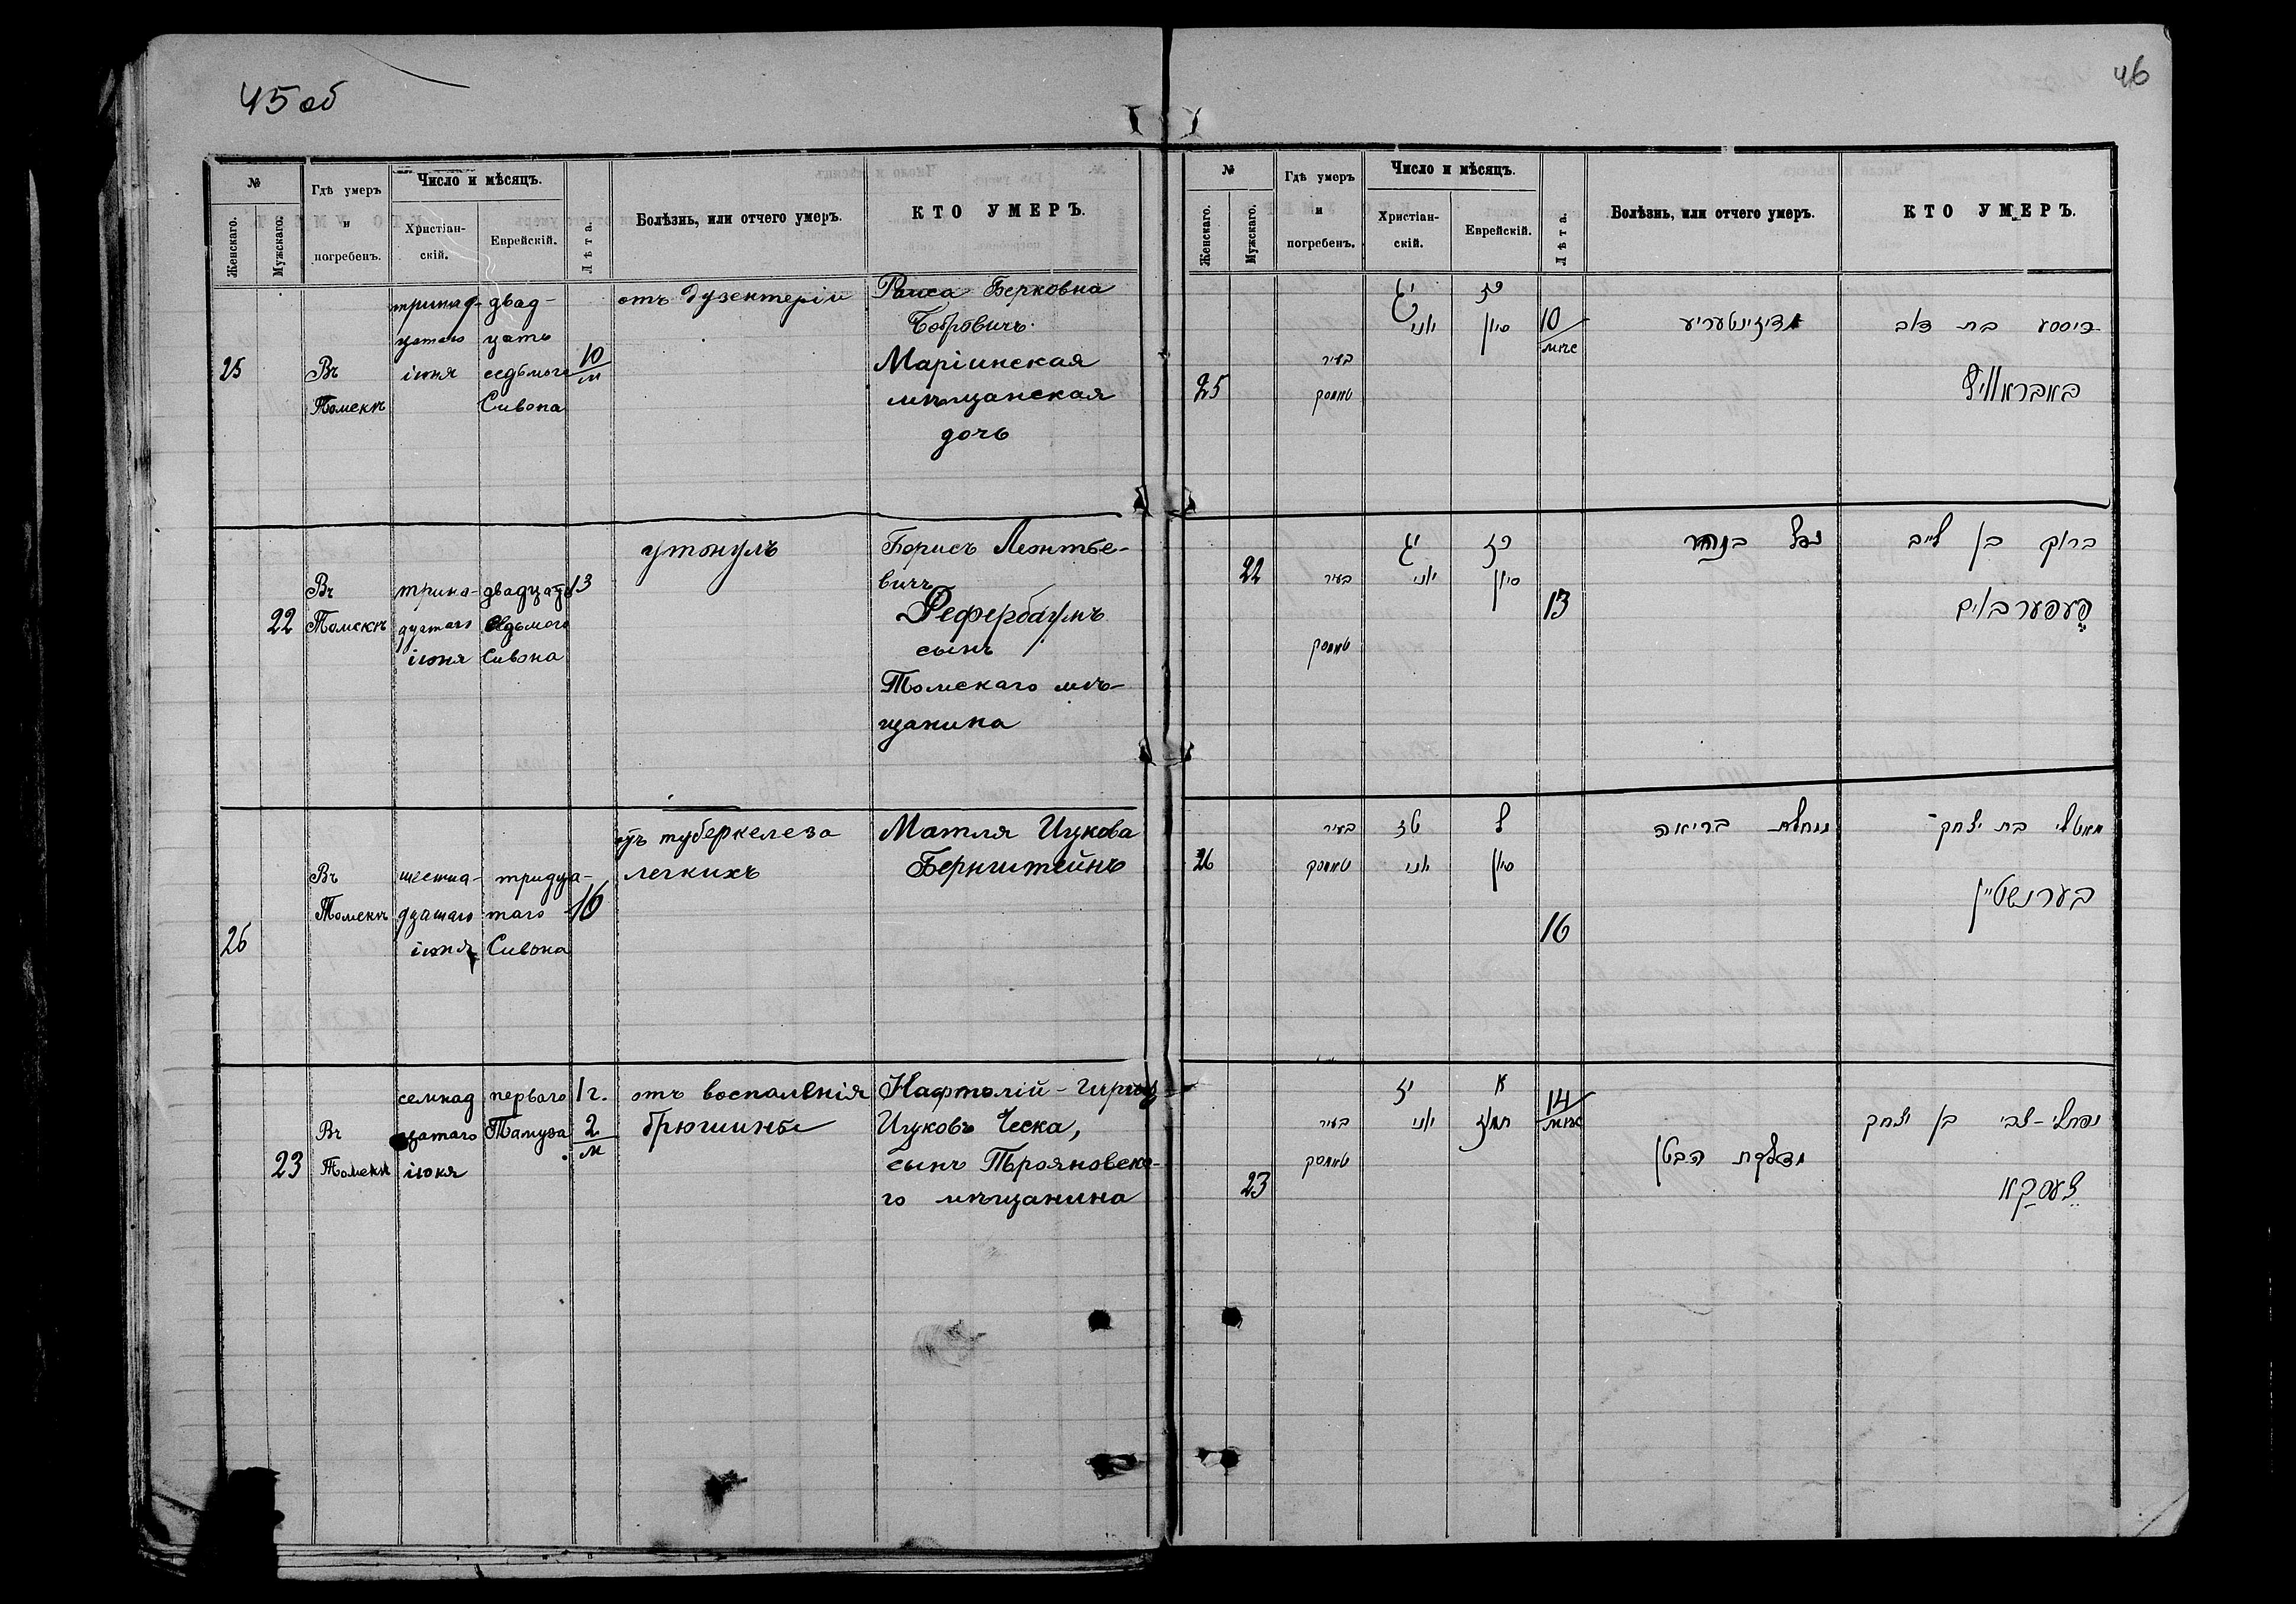 45 об
№
Женскаго.
Мужскаго.
Гдѣ умеръ
и
погребенъ.
Число и мѣсяцъ.
Христіан-
скій.
Еврейскій.
Лѣта.
Болѣзнь, или отчего умеръ.
КТО УМЕРЪ.
25
Въ
Томскѣ
тринад-
цатаго
іюня
двад-
цать
седьмого
Сивона
10
м
отъ дузентеріи
Раиса Берковна
Бобровичъ
Маріинская
мѣщанская
дочь
22
Въ
Томскѣ
трина-
дцатаго
іюня
двадцать
седьмого
Сивона
13
утонулъ
Борисъ Леонтье-
вичъ
Фефербаумъ
сынъ
Томскаго мѣ-
щанина
26
Въ
Томскѣ
шестна-
дцатаго
іюня
тридца-
таго
Сивона
16
отъ туберкелеза
легкихъ
Матля Ицкова
Бернштейнъ
23
Въ
Томскѣ
семнад
цатаго
іюня
перваго
Тамуза
1 г.
2
м
отъ воспаленія
брюшины
Нафтолій-Гирш
Ицковъ Ческа,
сынъ Трояновска-
го мѣщанина
46
№
Женскаго.
Мужскаго.
Гдѣ умеръ
и
погребенъ.
Число и мѣсяцъ.
Христіан-
скій.
Еврейскій.
Лѣта.
Болѣзнь, или отчего умеръ.
КТО УМЕРЪ.
25
בעיר
טאמסק
יג
יוני
כז
סיון
10
מיזינטעריע
רייסע בת דוב
באבראוויץ
22
בעיר
טאמסק
יג
יוני
כז
סיון
13
נפל בנהר
ברוך בן לייב
פעפערבוים
26
בעיר
טאמסק
טז
יוני
ל
סיון
16
ממחלת הריאה
מאטלי בת יצחק
בערנשטיין
23
בעיר
טאמסק
יז
יוני
א
תמוז
14
מדלקת הבטן
נפתלי-צבי בן יצחק
צעסקא